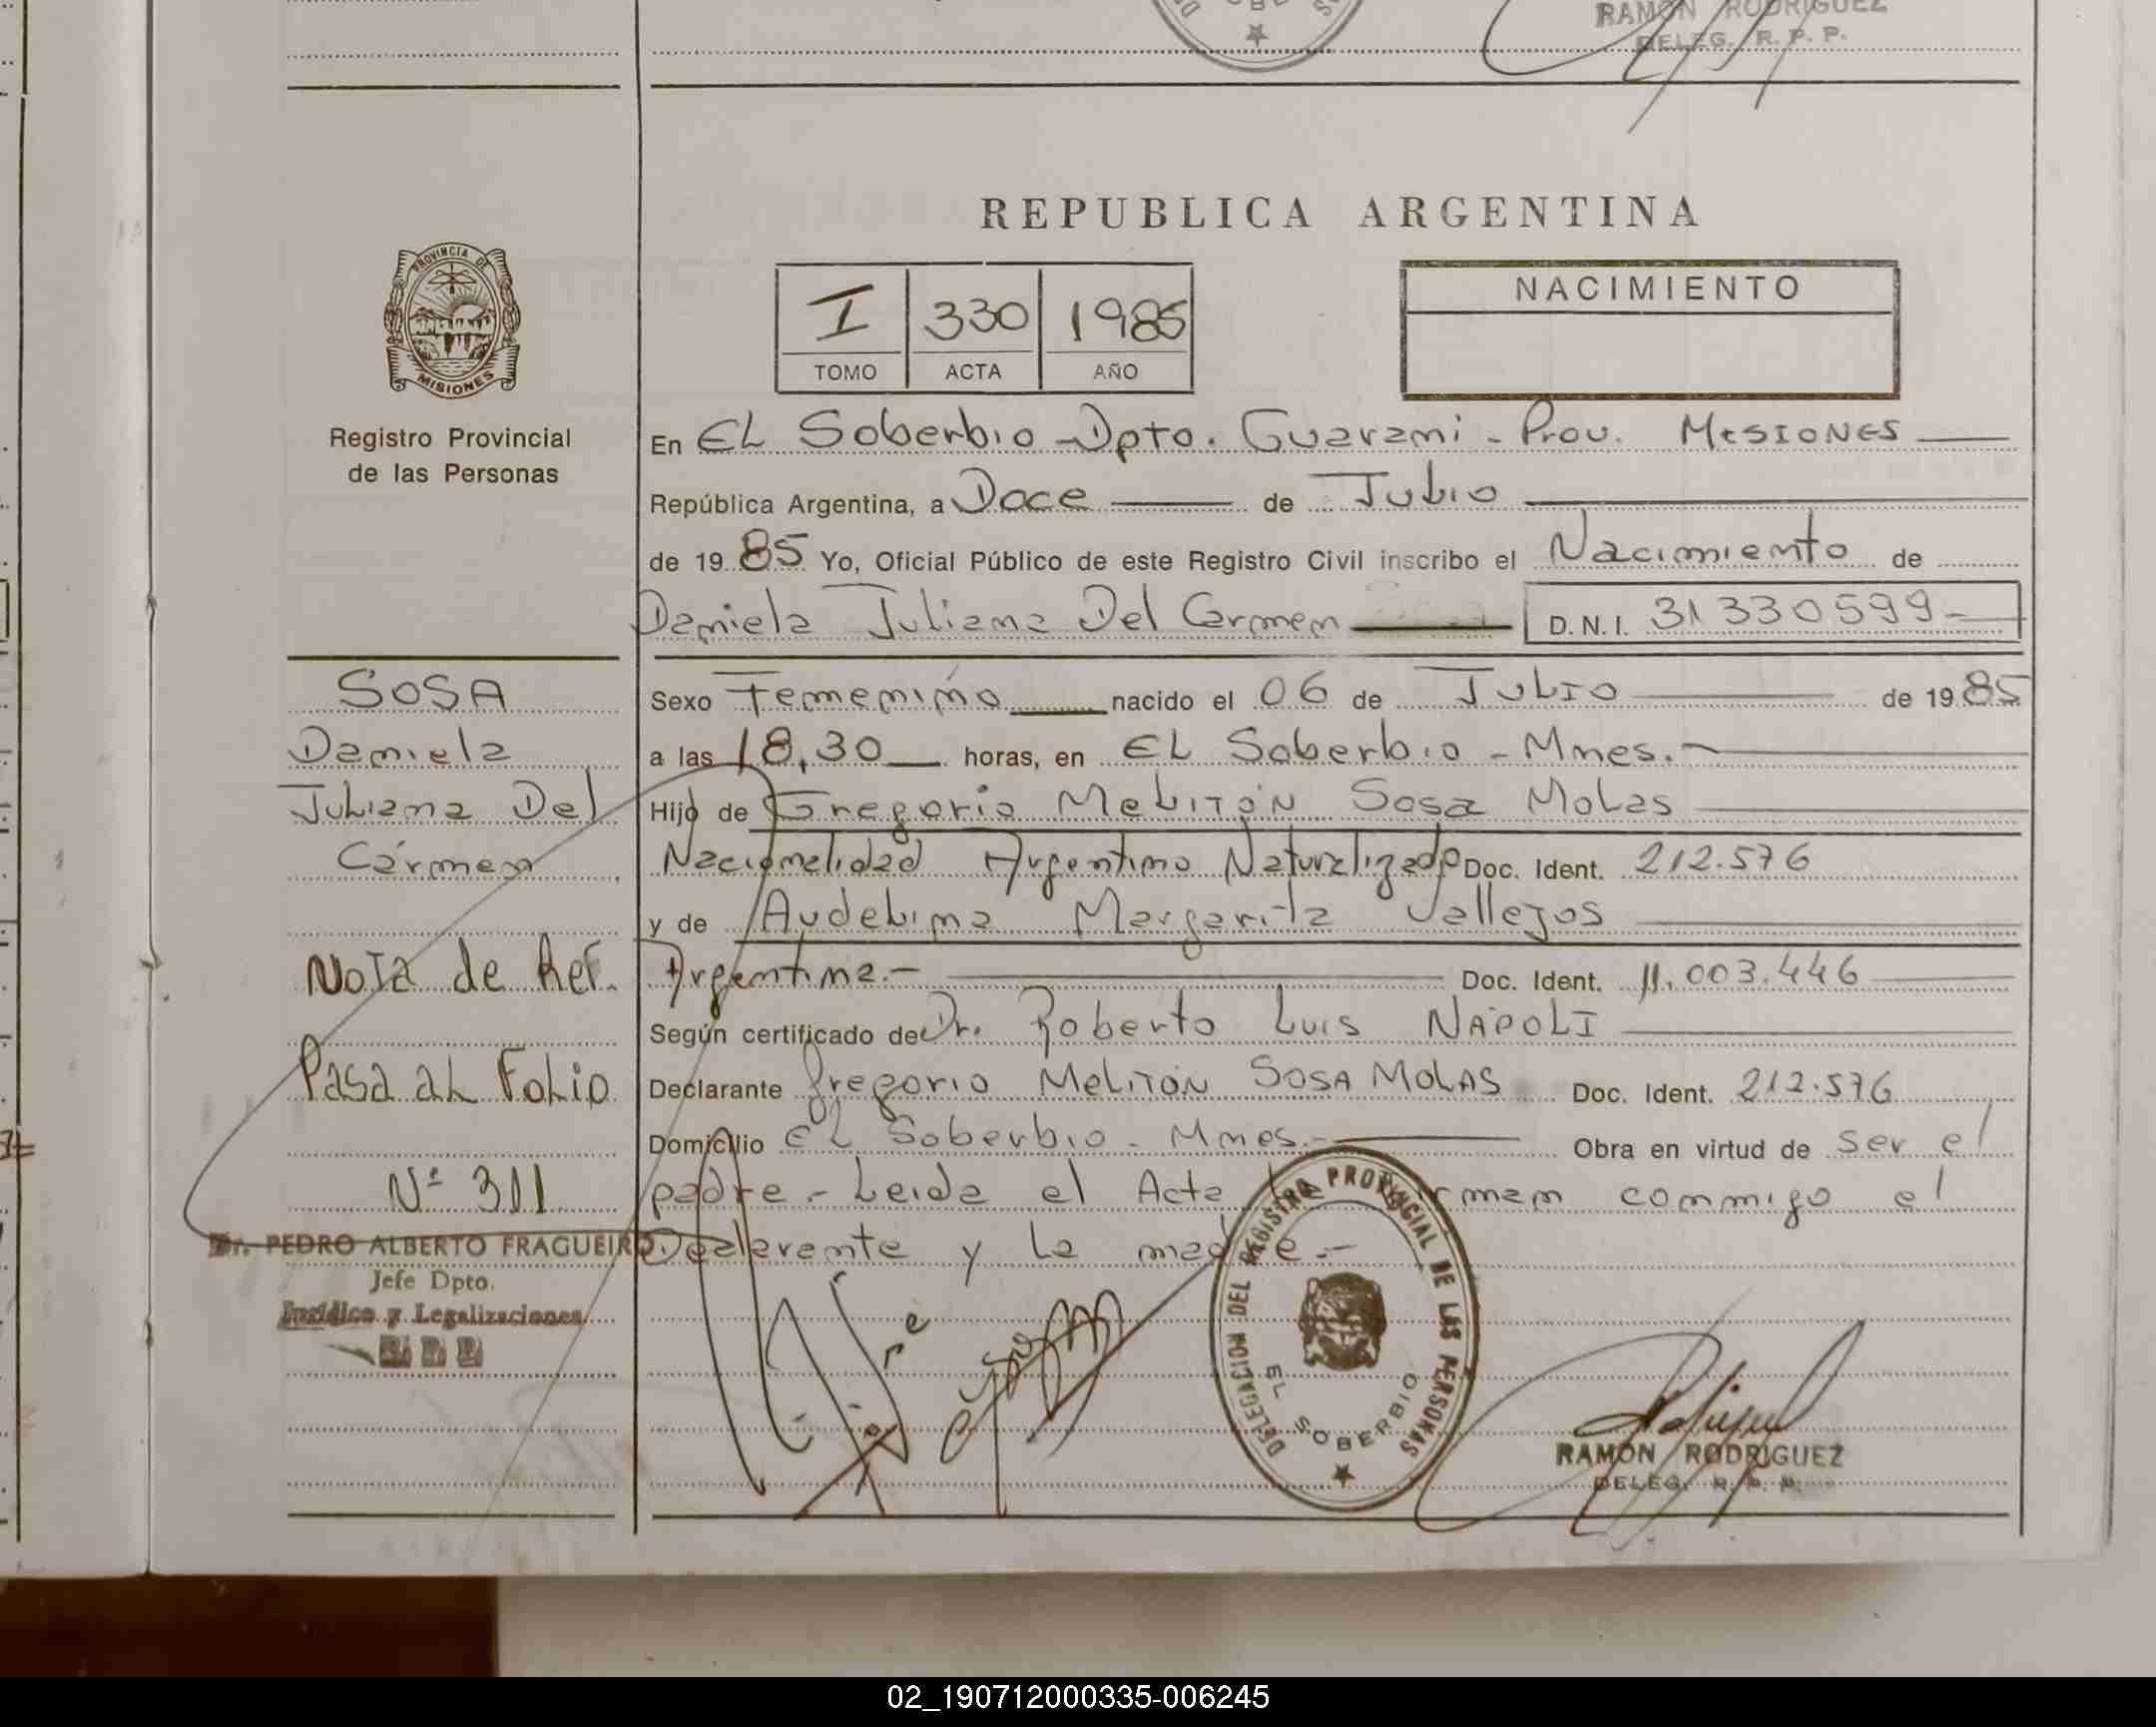 RAMÓN RODRIGUEZ
DELEG. R. P. P.
REPUBLICA ARGENTINA
PROVINCIA DE
MISIONES
Registro Provincial
de las Personas
I 330 1985
TOMO ACTA AÑO
NACIMIENTO
En EL Soberbio - Dpto. Guarani - Prov. MISIONES
República Argentina, a Doce de Julio
de 1985 Yo, Oficial Público de este Registro Civil inscribo el Nacimiento de
Daniela Juliana Del Carmen D.N.I. 31330599-
SOSA
Daniela
Juliana Del
Cármen
Nota de Ref.
Pasa al Folio
Nº 311
Dr. PEDRO ALBERTO FRAGUEIRO
Jefe Dpto.
Jurídico y Legalizaciones
Sexo Femenino nacido el 06 de Julio de 1985
a las 18,30 horas, en EL Soberbio - Mnes.-
Hijo de Gregorio Melitón Sosa Molas
Nacionalidad Argentino Naturalizado Doc. Ident. 212.576
y de Audelina Margarita Vallejos
Argentina.- Doc. Ident. 11.003.446
Según certificado de Dr. Roberto Luis NÁPOLI
Declarante Gregorio Melitón SOSA MOLAS Doc. Ident. 212.576
Domicilio EL Soberbio - Mnes.- Obra en virtud de ser el
padre.- Leida el Acta conmigo el
Declarante y la madre.-
DELEGACION DEL REGISTRO PROVINCIAL DE LAS PERSONAS
EL SOBERBIO
RAMÓN RODRIGUEZ
DELEG. R. P. P.
02_190712000335-006245